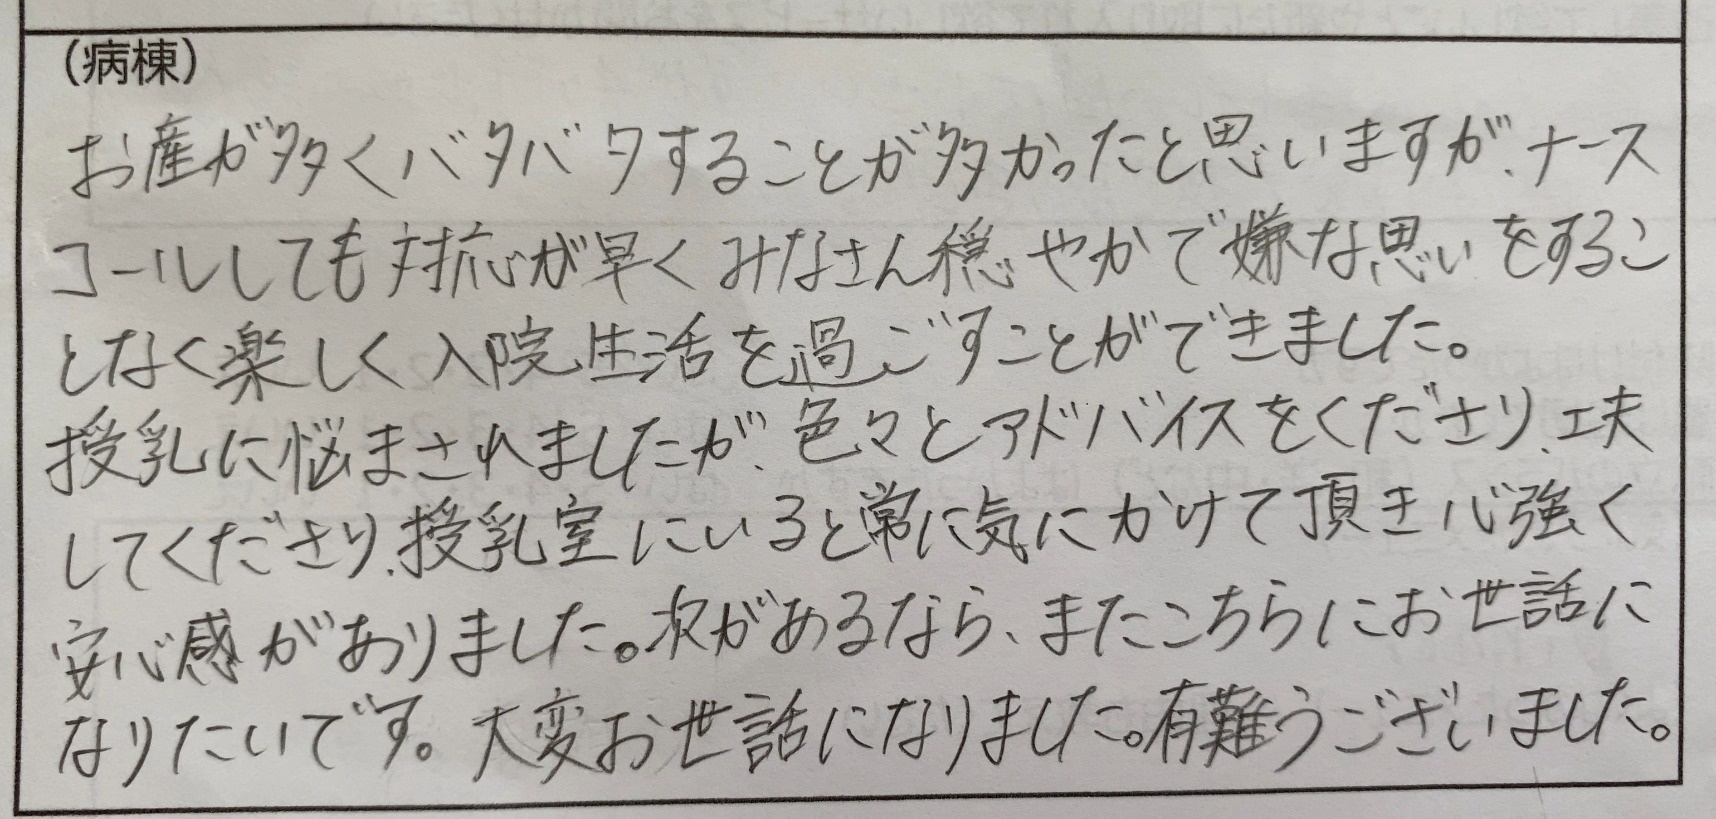 (病棟)
お産が多くバタバタすることが多かったと思いますが、ナース
コールしても対応が早くみなさん穏やかで嫌な思いをするこ
となく楽しく入院生活を過ごすことができました。
授乳に悩まされましたが、色々とアドバイスをくださり、工夫
してくださり、授乳室にいると常に気にかけて頂き心強く
安心感がありました。次があるなら、またこちらにお世話に
なりたいです。大変お世話になりました。有難うございました。